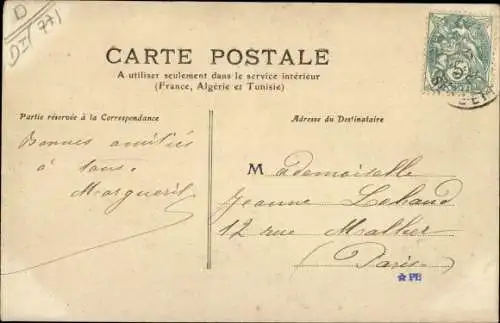 D
DII (77)
CARTE POSTALE
A utiliser seulement dans le service intérieur
(France, Algérie et Tunisie)
Partie réservée à la Correspondance
Adresse du Destinataire
Bonnes amitiés
à tous.
Marguerite
Mademoiselle
Jeanne Lehaud
12 rue Malher
(Paris)
☆PE